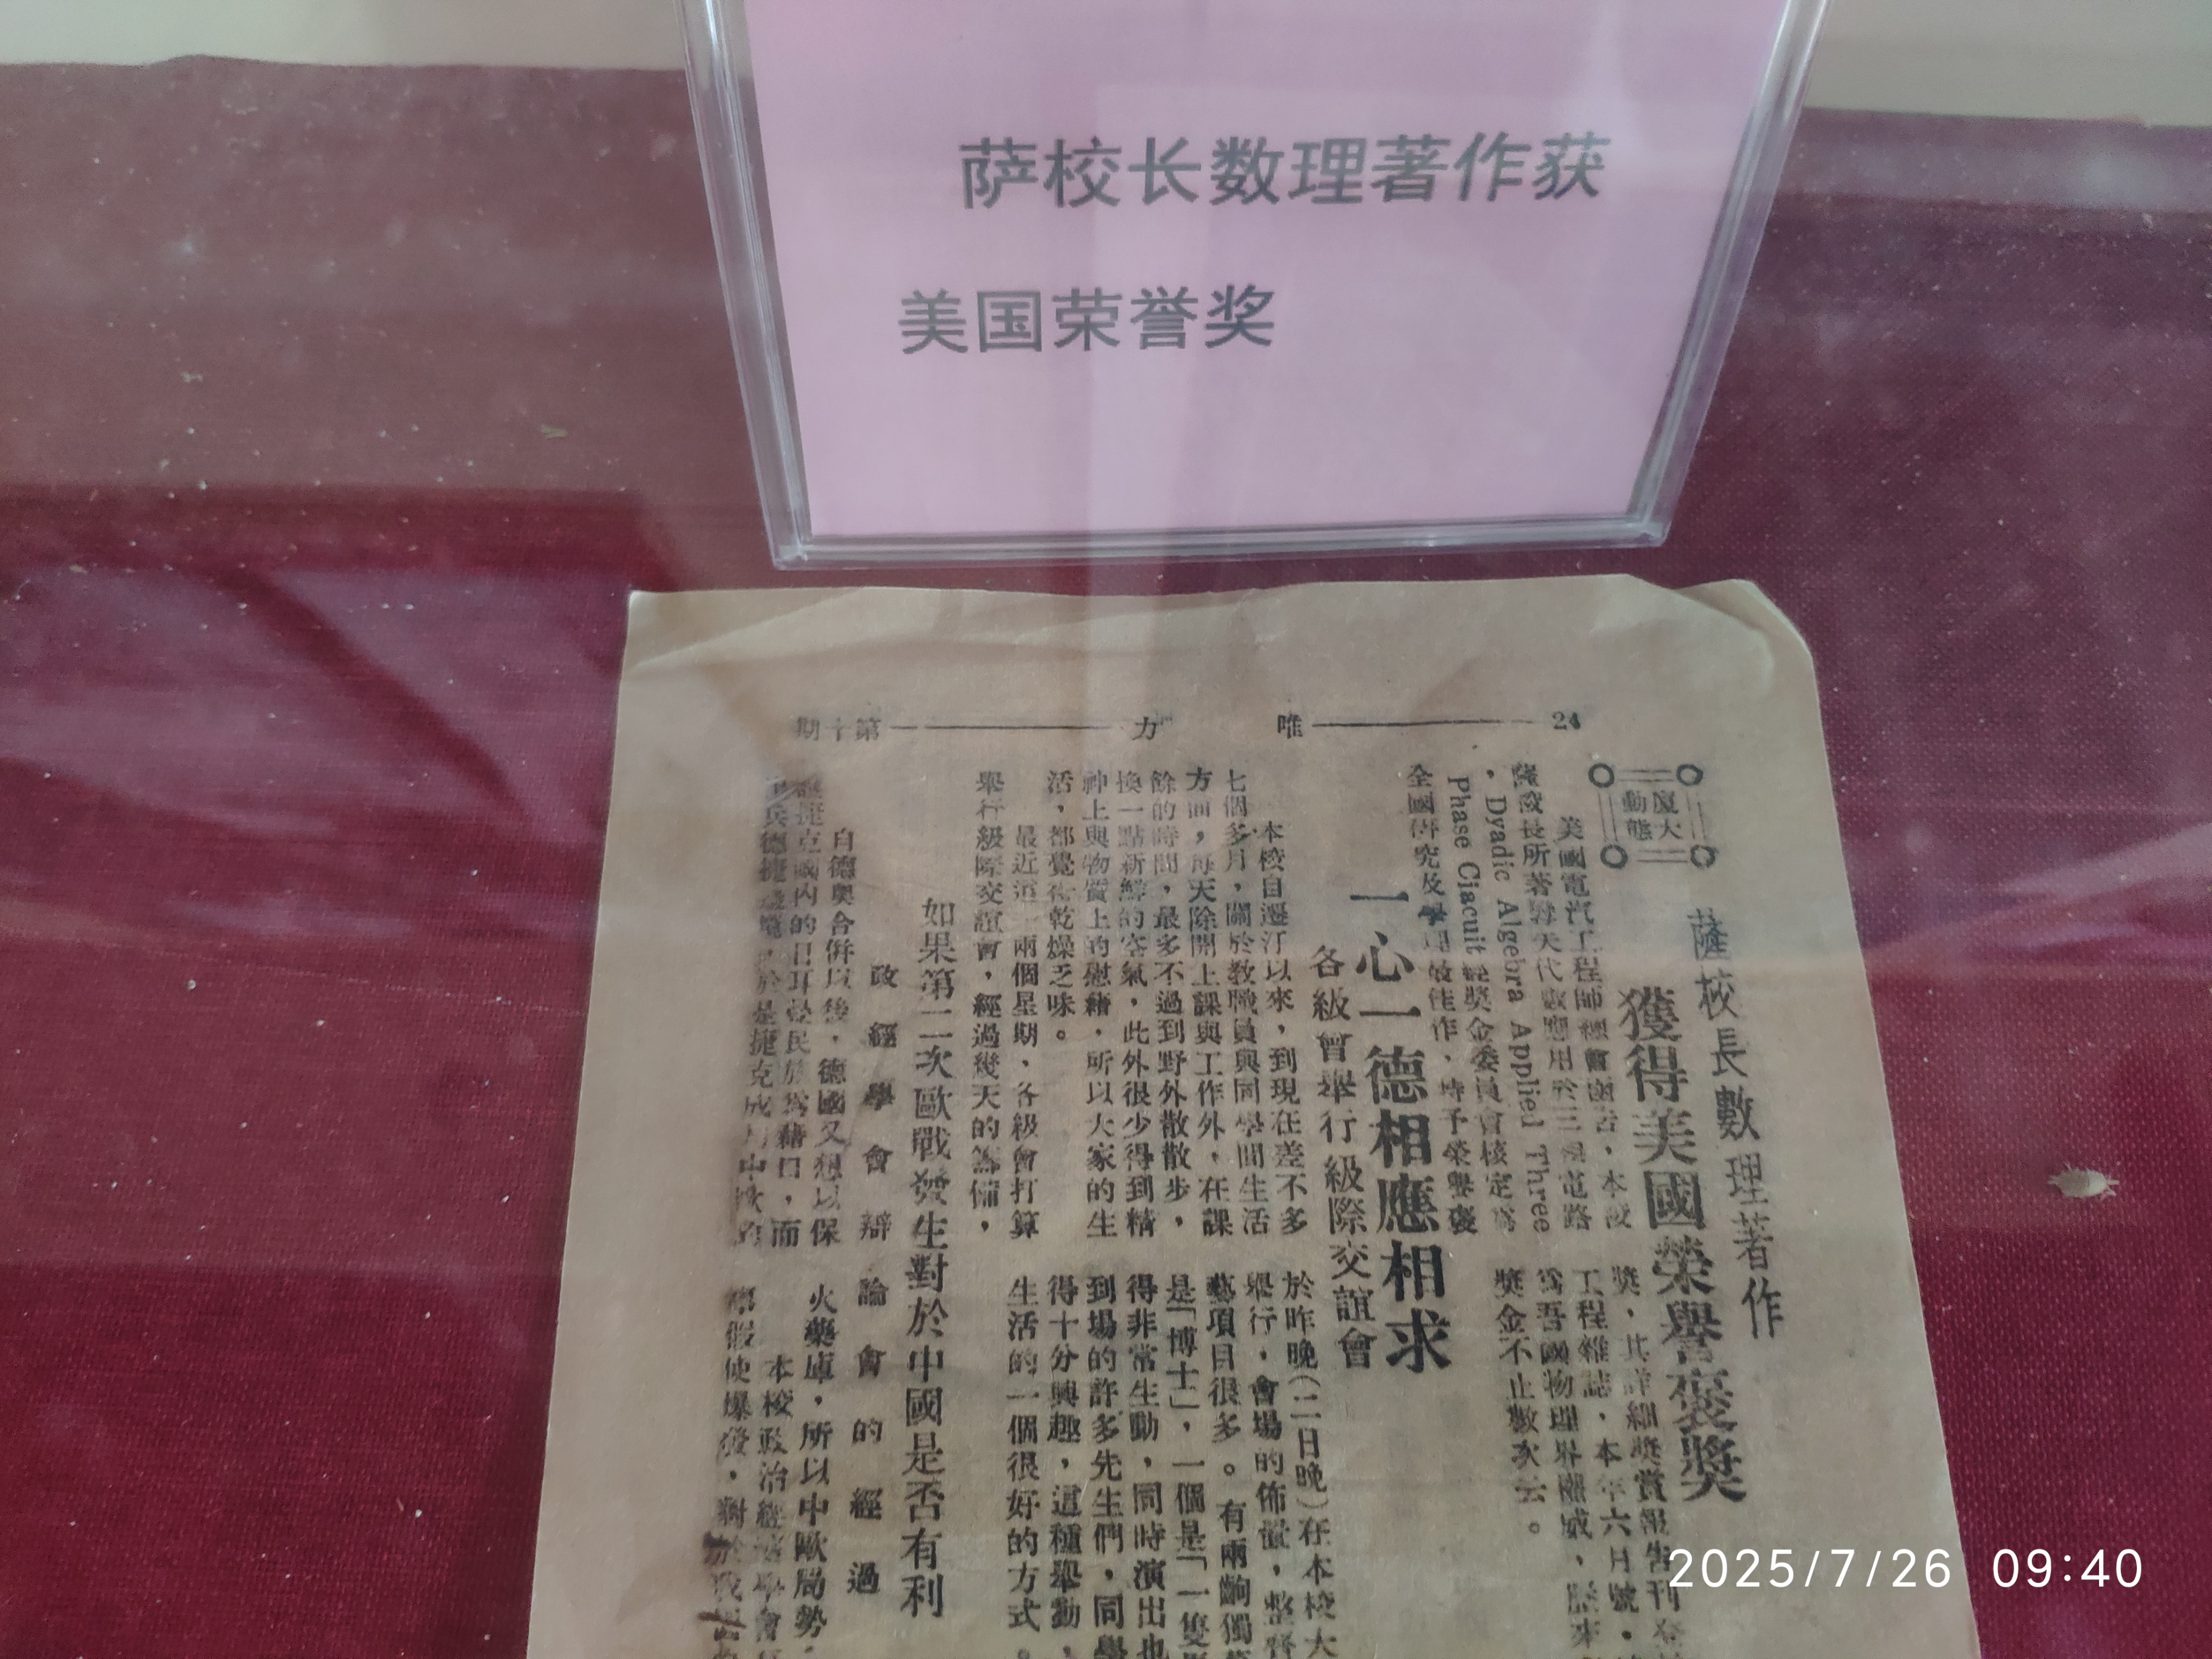 萨校长数理著作获
美国荣誉奖
24
唯力
第十期
廈大
動態
薩校長數理著作
獲得美國榮譽褒獎
美國電汽工程師總會函告，本校
薩校長所著
代數應用於三
電路
，Dyadic Algebra Applied Three
Phase Ciacuit 經獎金委員會核定爲
全國研究及
最佳作，特予榮譽褒
獎，其詳細獎賞報告刊
工程雜誌，本年六月號。
爲吾國物理界權威，歷來
獎金不止數次云。
一心一德相應相求
各級會舉行級際交誼會
本校自遷汀以來，到現在差不多
七個多月，關於教職員與同學間生活
方面，每天除開上課與工作外，在課
餘的時間，最多不過到野外散散步，
換一點新鮮的空氣，此外很少得到精
神上與物質上的慰藉，所以大家的生
活，都覺得乾燥乏味。
最近這一兩個星期，各級會打算
舉行級際交誼會，經過幾天的籌備，
於昨晚（二日晚）在本校大
舉行，會場的佈置，整齊
藝項目很多。有兩齣獨
是「博士」，一個是「一隻
得非常生動，同時演出也
到場的許多先生們，同學
得十分興趣，這種舉動，
生活的一個很好的方式。
如果第二次歐戰發生對於中國是否有利
政經學會辯論會的經過
自德奧合併以後，德國又想以保
捷克國內的日耳曼民族爲藉口，而
兵德捷
，於是捷克成
火藥庫，所以中歐局勢，
本校政治經濟學會
假使爆發，對於我國
2025/7/26 09:40